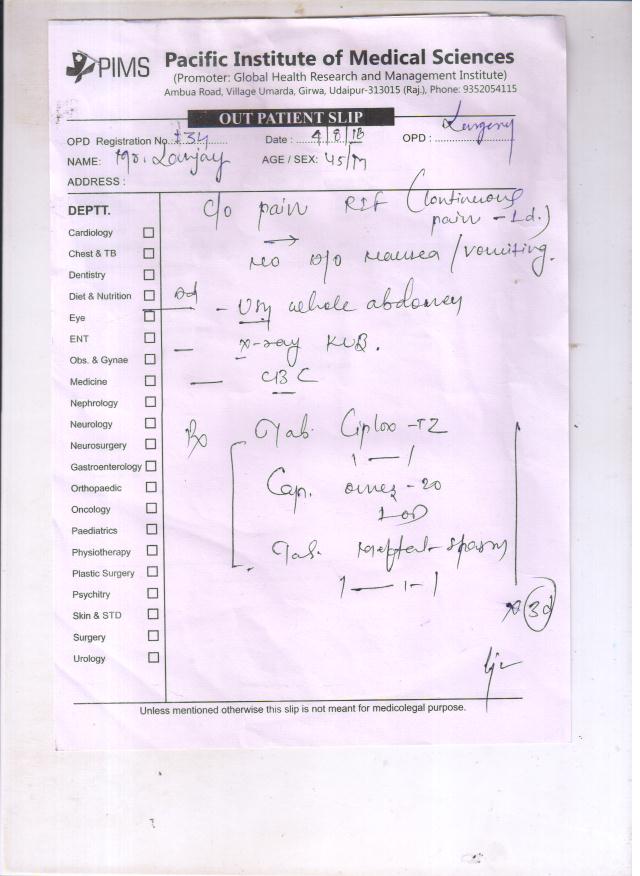 PIMS
Pacific Institute of Medical Sciences
(Promoter: Global Health Research and Management Institute)
Ambua Road, Village Umarda, Girwa, Udaipur-313015 (Raj.), Phone: 9352054115
OUT PATIENT SLIP
OPD Registration No. 134 Date: 4/8/18 OPD: Surgery
NAME: Mr. Sanjay AGE / SEX: 45/M
ADDRESS :
DEPTT.
Cardiology
Chest & TB
Dentistry
Diet & Nutrition
Eye
ENT
Obs. & Gynae
Medicine
Nephrology
Neurology
Neurosurgery
Gastroenterology
Orthopaedic
Oncology
Paediatrics
Physiotherapy
Plastic Surgery
Psychitry
Skin & STD
Surgery
Urology
c/o pain RIF (Continuous
pain - 1d.)
→ no nausea / vomiting.
Ad - USG whole abdomen
- X-ray KUB.
- CBC
Rx Tab. Ciplox-TZ
1 — 1
Cap. omez-20
1 OD
Tab. Meftal-spasm
1 — 1 - 1
x 3d
Unless mentioned otherwise this slip is not meant for medicolegal purpose.